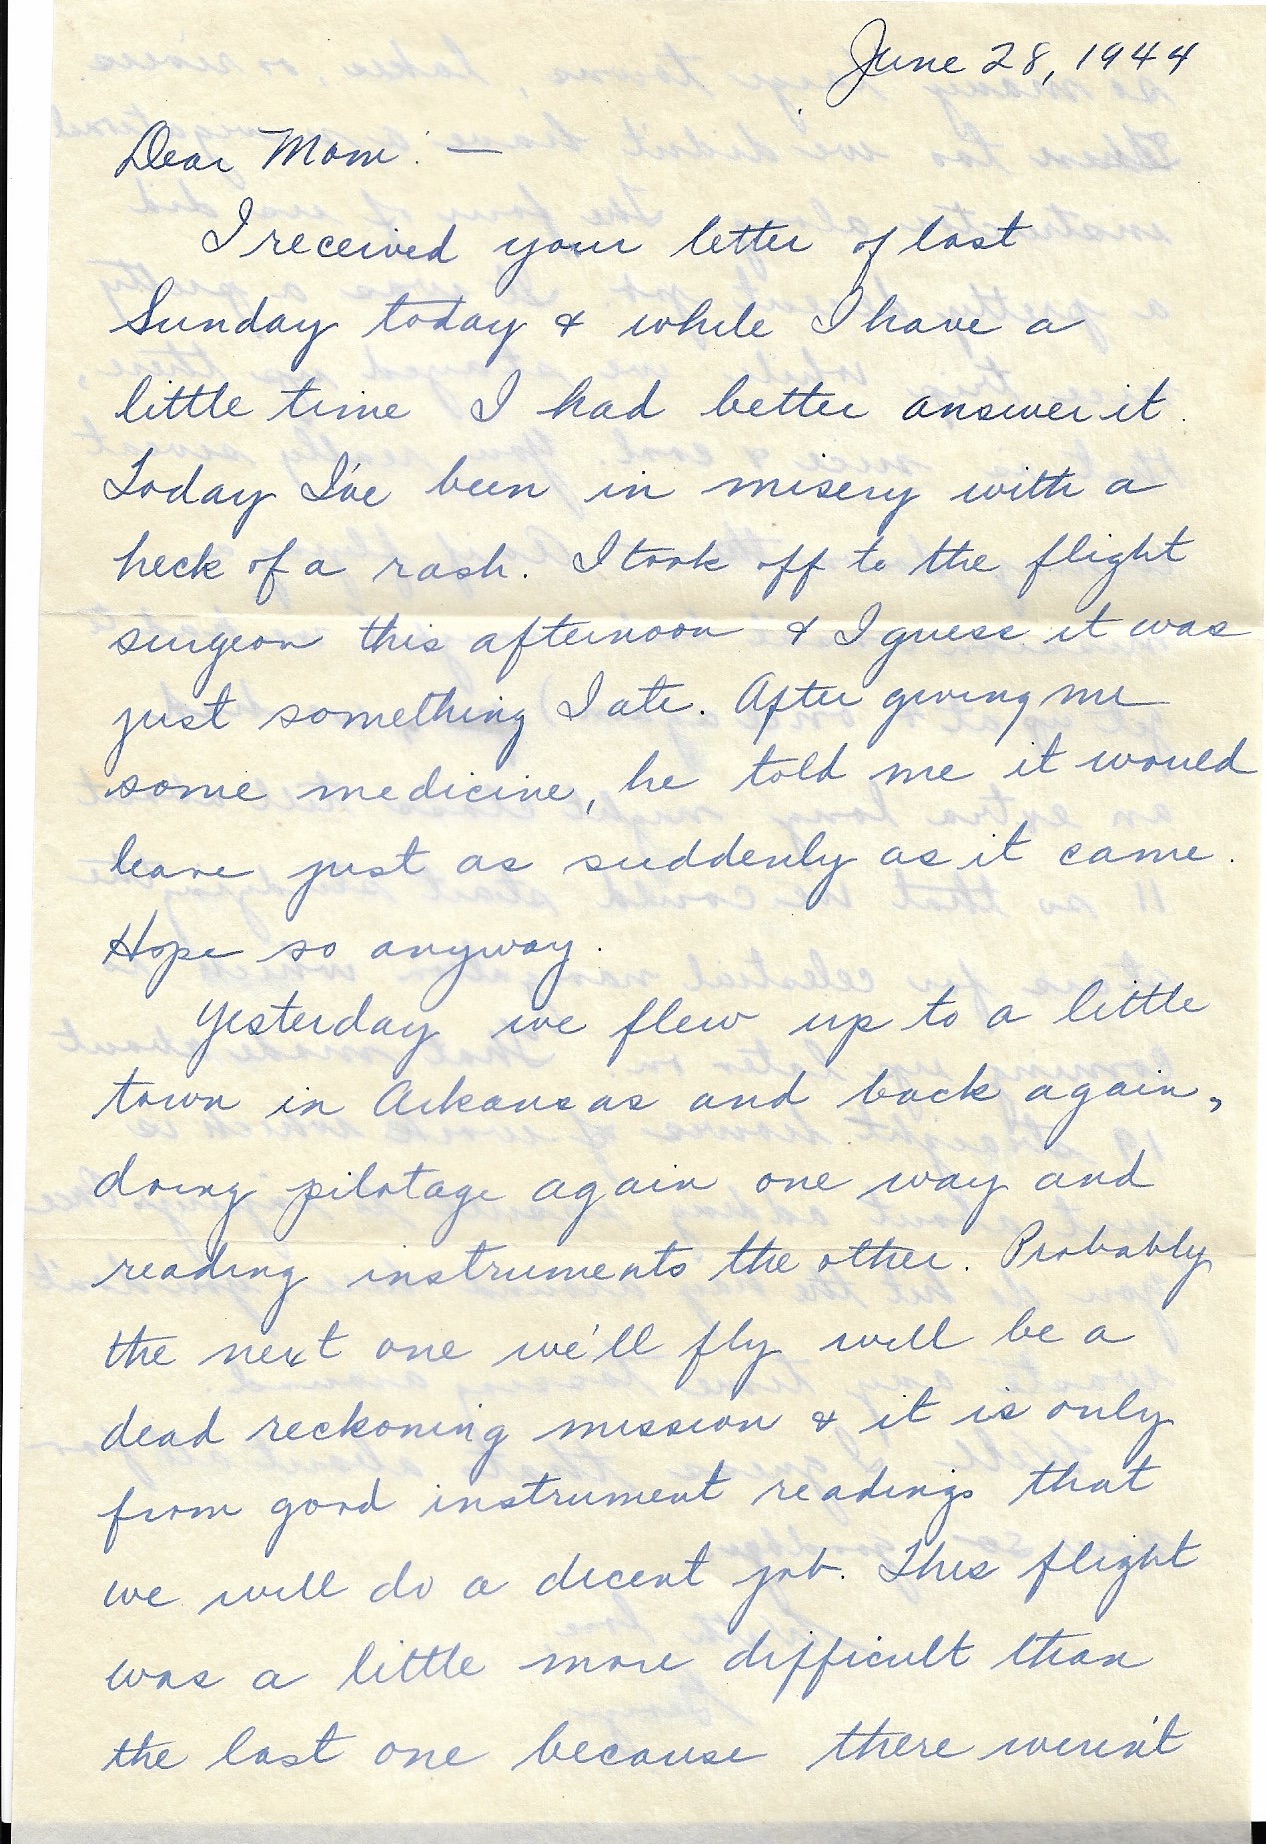 June 28, 1944
Dear Mom: —
I received your letter of last
Sunday today & while I have a
little time I had better answer it.
Today I've been in misery with a
heck of a rash. I took off to the flight
surgeon this afternoon & I guess it was
just something I ate. After giving me
some medicine, he told me it would
leave just as suddenly as it came.
Hope so anyway.
Yesterday we flew up to a little
town in Arkansas and back again,
doing pilotage again one way and
reading instruments the other. Probably
the next one we'll fly will be a
dead reckoning mission & it is only
from good instrument readings that
we will do a decent job. This flight
was a little more difficult than
the last one because there weren't